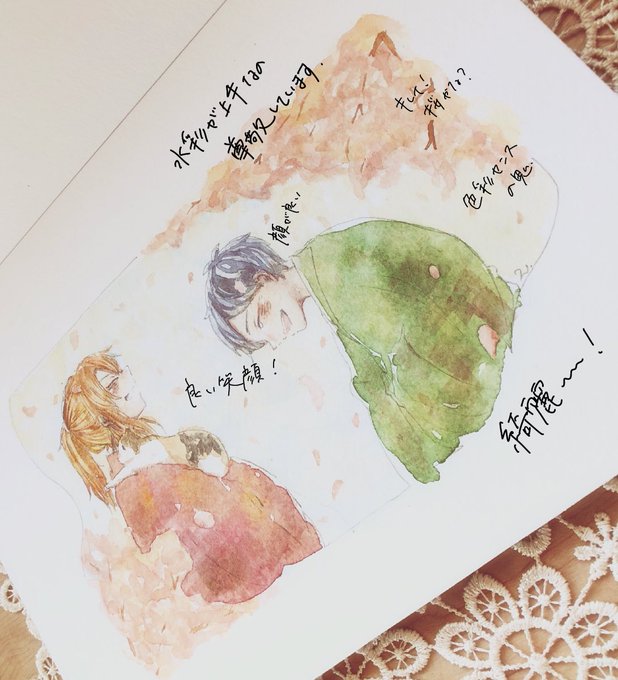 水彩が上手なの
尊敬しています.
色彩センス
の鬼.
顔が良い
良い笑顔!
綺麗〜!